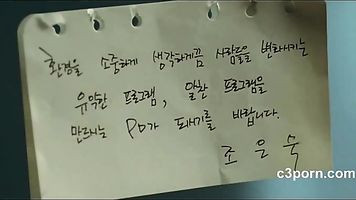 환경을 소중하게 생각하게끔 사람들을 변화시키는
유익한 프로그램, 알찬 프로그램을
만드시는 PD가 되시기를 바랍니다.
조 은 숙
c3porn.com